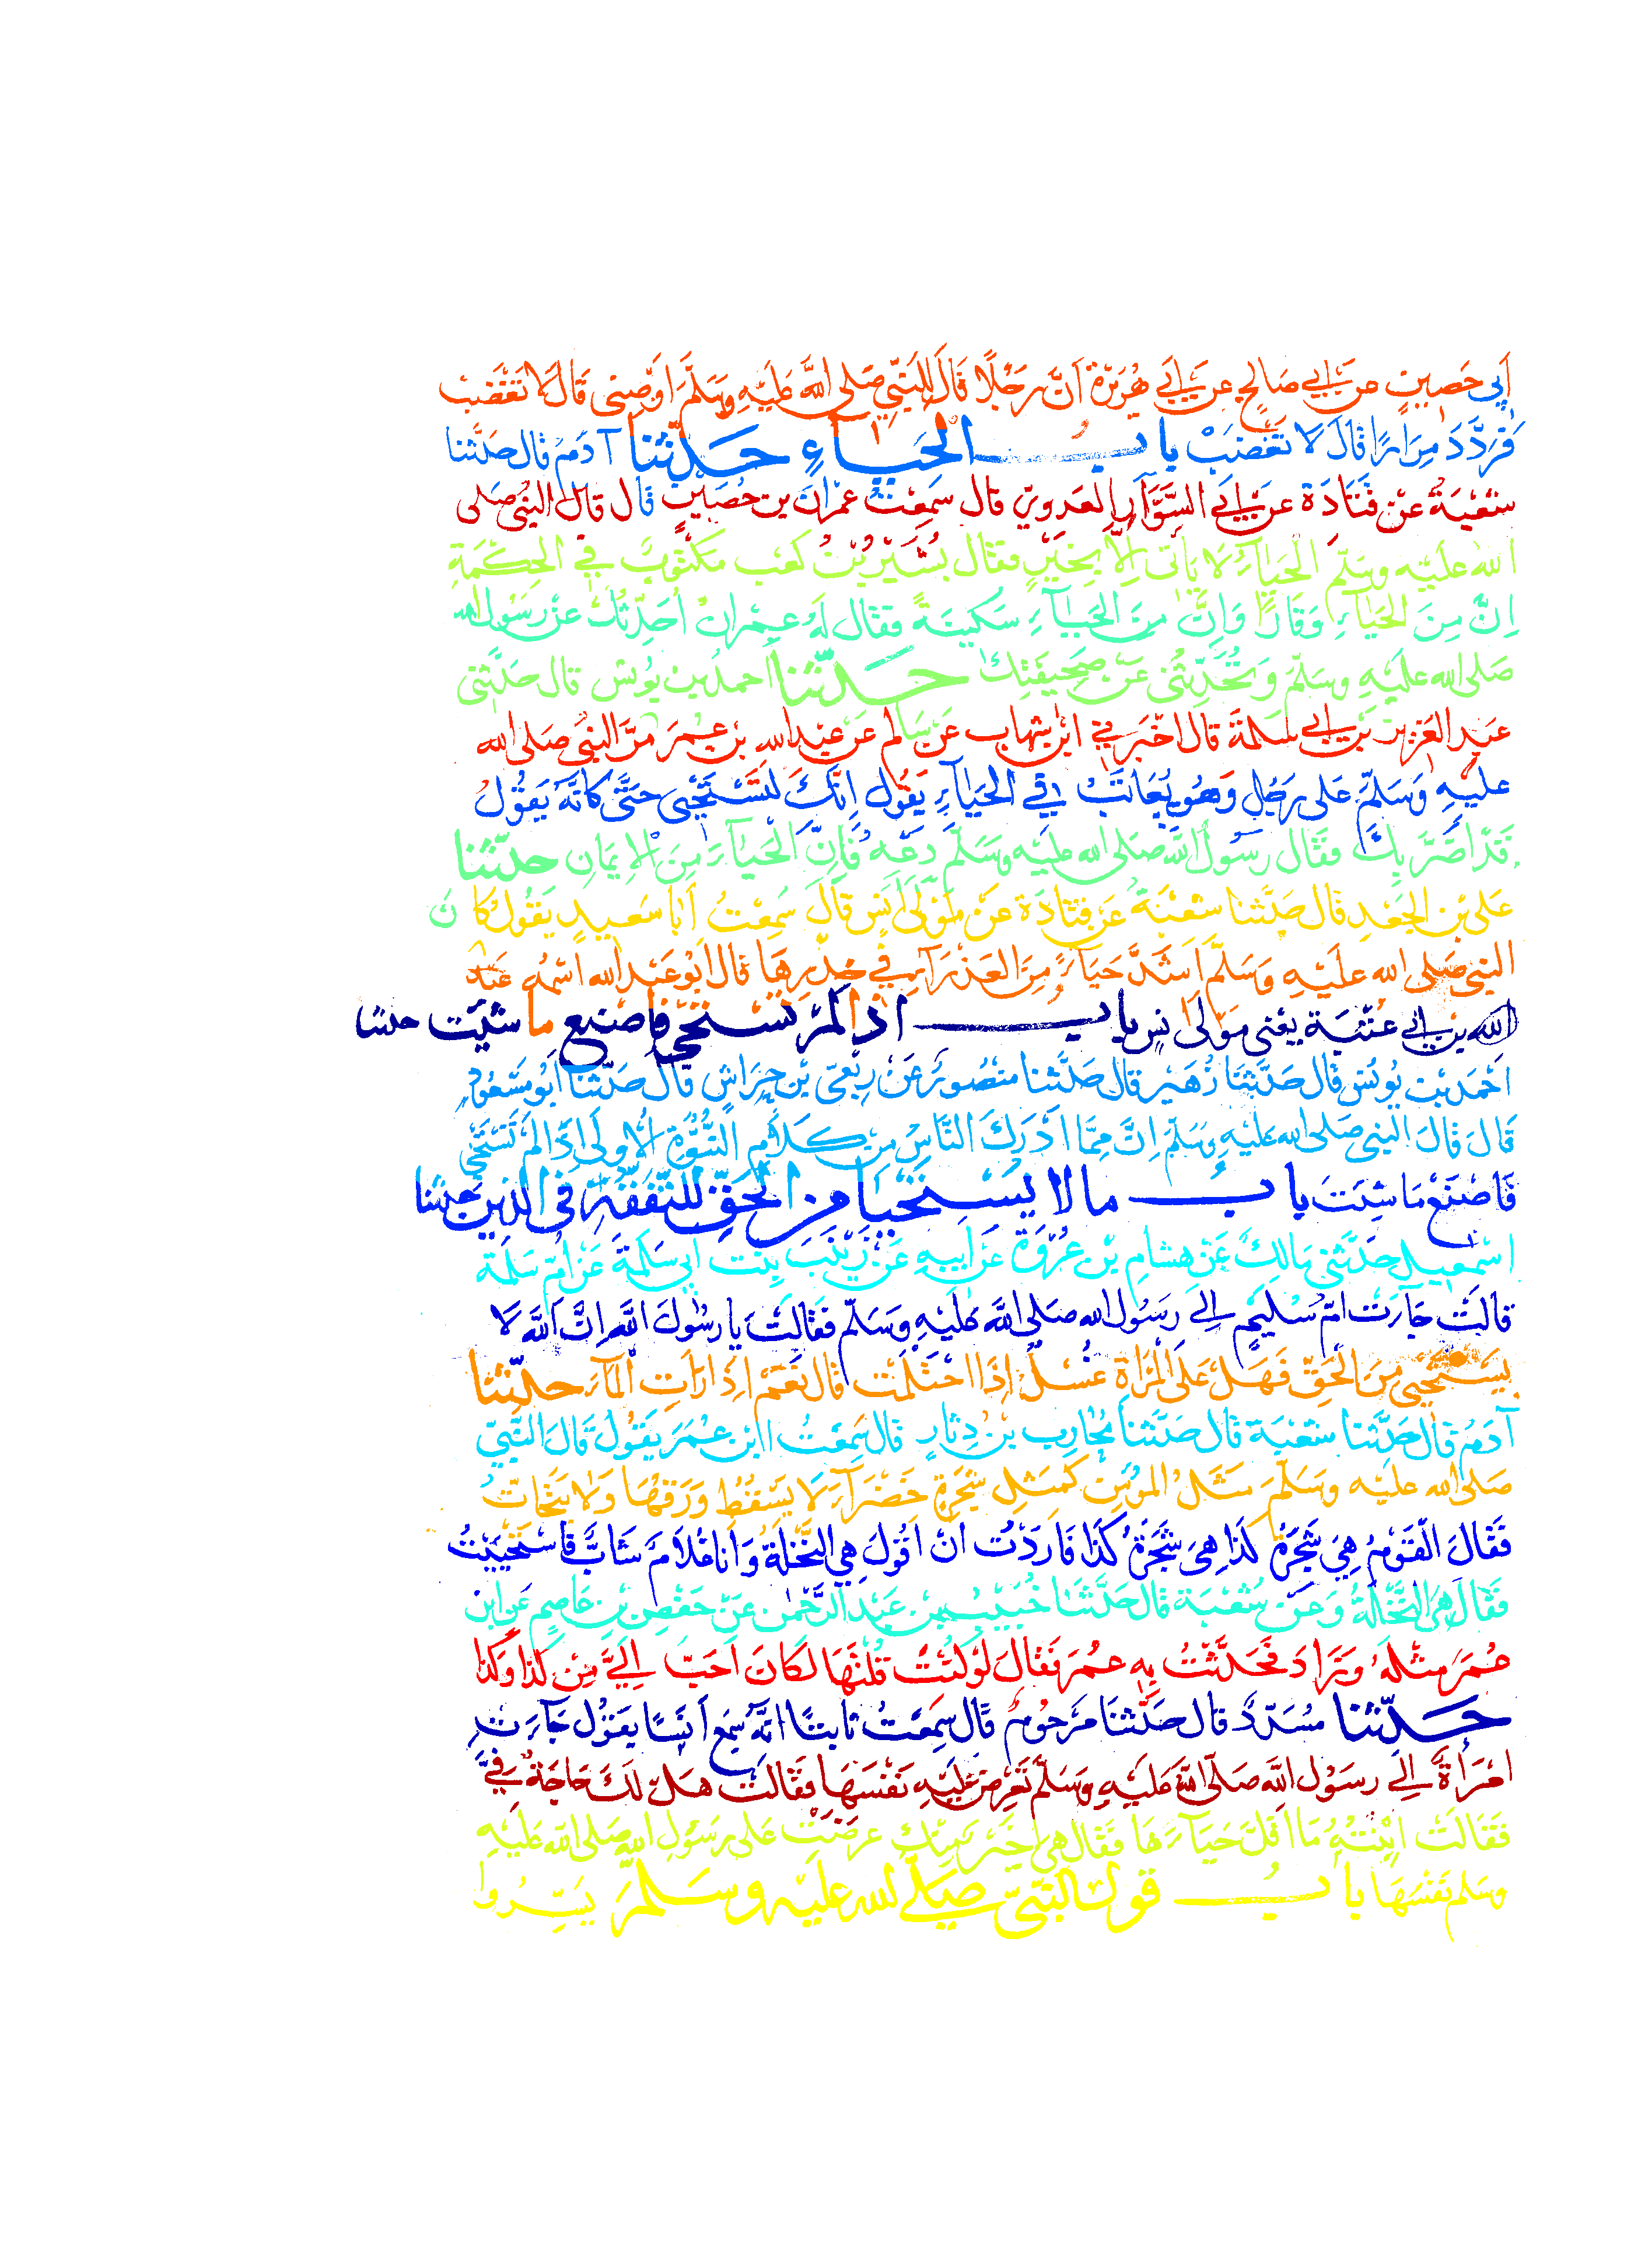 أَبِي حَصِينٍ عَن أَبِي صَالِحٍ عَن أَبِي هُرَيْرَةَ أَنَّ رَجُلًا قَالَ لِلنَّبِيِّ صَلى اللَّهُ عَلَيْهِ وَسَلَّمَ أَوْصِنِي قَالَ لَا تَغْضَبْ
فَرَدَّدَ مِرَارًا قَالَ لَا تَغْضَبْ بابُ الحَيَاءِ حَدَّثنا آدَمُ قال حَدَّثنا
شُعْبَةُ عَنْ قَتَادَةَ عَن أَبِي السَّوَّارِ العَدَوِيِّ قال سَمِعْتُ عِمْرَانَ بن حُصَيْنٍ قَال قال النبيُّ صَلى
الله عَلَيْهِ وسَلَّم الحَيَاءُ لَا يَأتِي إِلَّا بِخَيْرٍ فقال بُشَيْرُ بْنُ كَعْبٍ مَكْتُوبٌ فِي الحِكْمَةِ
إِنَّ مِنَ الحَيَاءِ وَقَارًا وَإِنَّ مِنَ الحَيَاءِ سَكِينَةً فقال لَهُ عِمْرَانُ أُحَدِّثُكَ عَنْ رَسُولِ الله
صَلى الله عَلَيْهِ وسَلَّمَ وَتُحَدِّثُنِي عَنْ صَحِيفَتِكَ حَدَّثنا أحمدُ بن يُونُسَ قال حَدَّثَنِي
عَبْدُ العَزِيزِ بْنُ أَبِي سَلَمَةَ قال أخْبَرَنِي ابْنُ شِهَابٍ عَنْ سَالِم عَن عَبْدِ اللهِ بْنِ عُمَرَ مَرَّ النبيُّ صَلى الله
عَلَيْهِ وَسَلَّمَ عَلى رَجُلٍ وَهُوَ يُعَاتَبُ فِي الحَيَاءِ يَقُولُ إِنَّكَ لَتَسْتَحْيِي حَتَّى كَأَنَّهُ يَقُولُ
قَدْ أَضَرَّ بِكَ فقَال رَسُولُ اللَّهِ صَلى الله عَليْهِ وَسَلَّمَ دَعْهُ فَإِنَّ الحَيَاءَ مِنَ الإِيمَانِ حدّثنا
عَلي بْنُ الجَعْدِ قال حَدَّثنا شُعْبَةُ عَن قَتَادَةَ عَنْ مَوْلَى أَنَسٍ قَالَ سَمِعْتُ أَبَا سَعِيدٍ يَقُولُ كَانَ
النبي صَلى الله عَلَيْهِ وَسَلَّمَ أَشَدَّ حَيَاءً مِنَ العَذْرَاءِ فِي خِدْرِهَا قَال أَبُو عَبْدِ الله اسْمُهُ عَبْدُ
الله بن أبي عُتْبَةَ يعْنِي مَوْلَى أنسٍ باب اذا لَمْ تَسْتَحْيِ فاصْنَع ما شِئْتَ حدثنا
أَحْمَدُ بنُ يُونُسَ قال حَدَّثَنَا زُهَيْرٌ قال حَدَّثنا مَنْصُورٌ عَنْ رِبْعِيِّ بْنِ حِرَاشٍ قَالَ حَدَّثَنَا أَبُو مَسْعُودٍ
قَالَ قَالَ النبي صَلى الله عَلَيْهِ وسَلَّمَ إِنَّ مِمَّا أَدْرَكَ النَّاسُ مِنْ كَلَامِ النُّبُوَّةِ الأُولَى إِذَا لَمْ تَسْتَحْيِ
فَاصْنَعْ مَا شِئْتَ بابُ ما لا يُسْتَحْيَا مِنَ الحَقِّ لِلتَّفَقُّهِ في الدّينِ حَدثنا
اسْمعيل حَدَّثَنِي مَالِكٌ عَنْ هِشَامِ بْنِ عُرْوَةَ عَنْ أَبِيهِ عَنْ زَيْنَبَ بِنْتِ أَبِي سَلَمَةَ عَنْ أُمِّ سَلَمَةَ
قالَتْ جَاءَتْ أمُّ سُلَيْمٍ إلى رَسُولِ الله صَلى اللَّهُ عَلَيْهِ وَسَلَّمَ فَقَالَتْ يَا رسُولَ اللَّهِ إِنَّ اللَّهَ لَا
يَسْتَحْيِي مِنَ الحَقِّ فَهَلْ عَلَى المَرْأَةِ غُسْلٌ إِذَا احْتَلَمَتْ قال نَعَمْ إِذَا رَأَتِ المَاءَ حدّثنا
آدَمُ قَال حَدَّثَنَا شُعْبَة قَال حَدَّثَنَا مُحَارِب بْنُ دِثَارٍ قال سَمِعْتُ ابْنَ عُمَرَ يَقُولُ قَالَ النَّبِيّ
صَلى الله عليْه وسَلَّمَ مَثَلُ المُؤْمِنِ كَمَثَلِ شَجَرَةٍ خَضْرَاءَ لَا يَسْقُطُ وَرَقُهَا وَلَا يَتَحَاتُّ
فَقَالَ القَوْمُ هِيَ شَجَرَةُ كَذَا هِيَ شَجَرَةُ كَذَا فَأَرَدْتُ أنْ أَقُولَ هِيَ النَّخْلَةُ وَأَنَا غُلَامٌ شَابٌّ فَاسْتَحْيَيْتُ
فَقَالَ هِيَ النَّخْلَةُ وَعَنْ شُعْبَة قَالَ حَدَّثَنَا خُبَيْبُ بن عَبْدِ الرَّحْمٰنِ عَنْ حَفْصِ بْنِ عَاصِمٍ عَنِ ابْنِ
عُمَرَ مِثْلَهُ وَزَادَ فَحَدَّثْتُ بِهِ عُمَرَ فَقَالَ لَوْ كُنْتَ قُلْتَهَا لَكَانَ أَحَبَّ إِلَيَّ مِنْ كَذَا وَكَذَا
حَدَّثنا مُسَدَّدٌ قال حَدَّثَنَا مَرْحُومٌ قَالَ سَمِعْتُ ثَابِتًا أَنَّهُ سَمِعَ أَنَسًا يَقُولُ جَاءَتِ
امْرَأةٌ إلى رسَوْل اللَّهِ صَلّى اللهُ عَلَيْهِ وَسَلَّمَ تَعْرِضُ عَلَيْهِ نَفْسَهَا فَقَالَتْ هَلْ لَكَ حَاجَةٌ فِيَّ
فَقَالَتْ ابْنَتُهُ مَا أَقَلَّ حَيَاءَهَا فَقَال هِيَ خَيْرٌ مِنْكِ عَرَضَتْ عَلى رَسُولِ اللهِ صَلى اللهُ عَلَيْهِ
وسَلم نَفْسَهَا بابُ قول النّبيّ صَلى الله عليْه وسَلَّمَ يَسِّرُوا